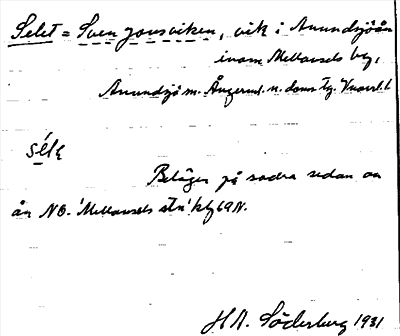 Selet = Sven Jonsviken, vik i Anundsjöån
inom Mellansels by,
Anundsjö sn. Ångerml. n. doms tg. Vnorrl. l
séle
Belägen på södra sidan av
ån NO. 'Mellansels stn' kbl 69N.
H A. Söderberg 1931